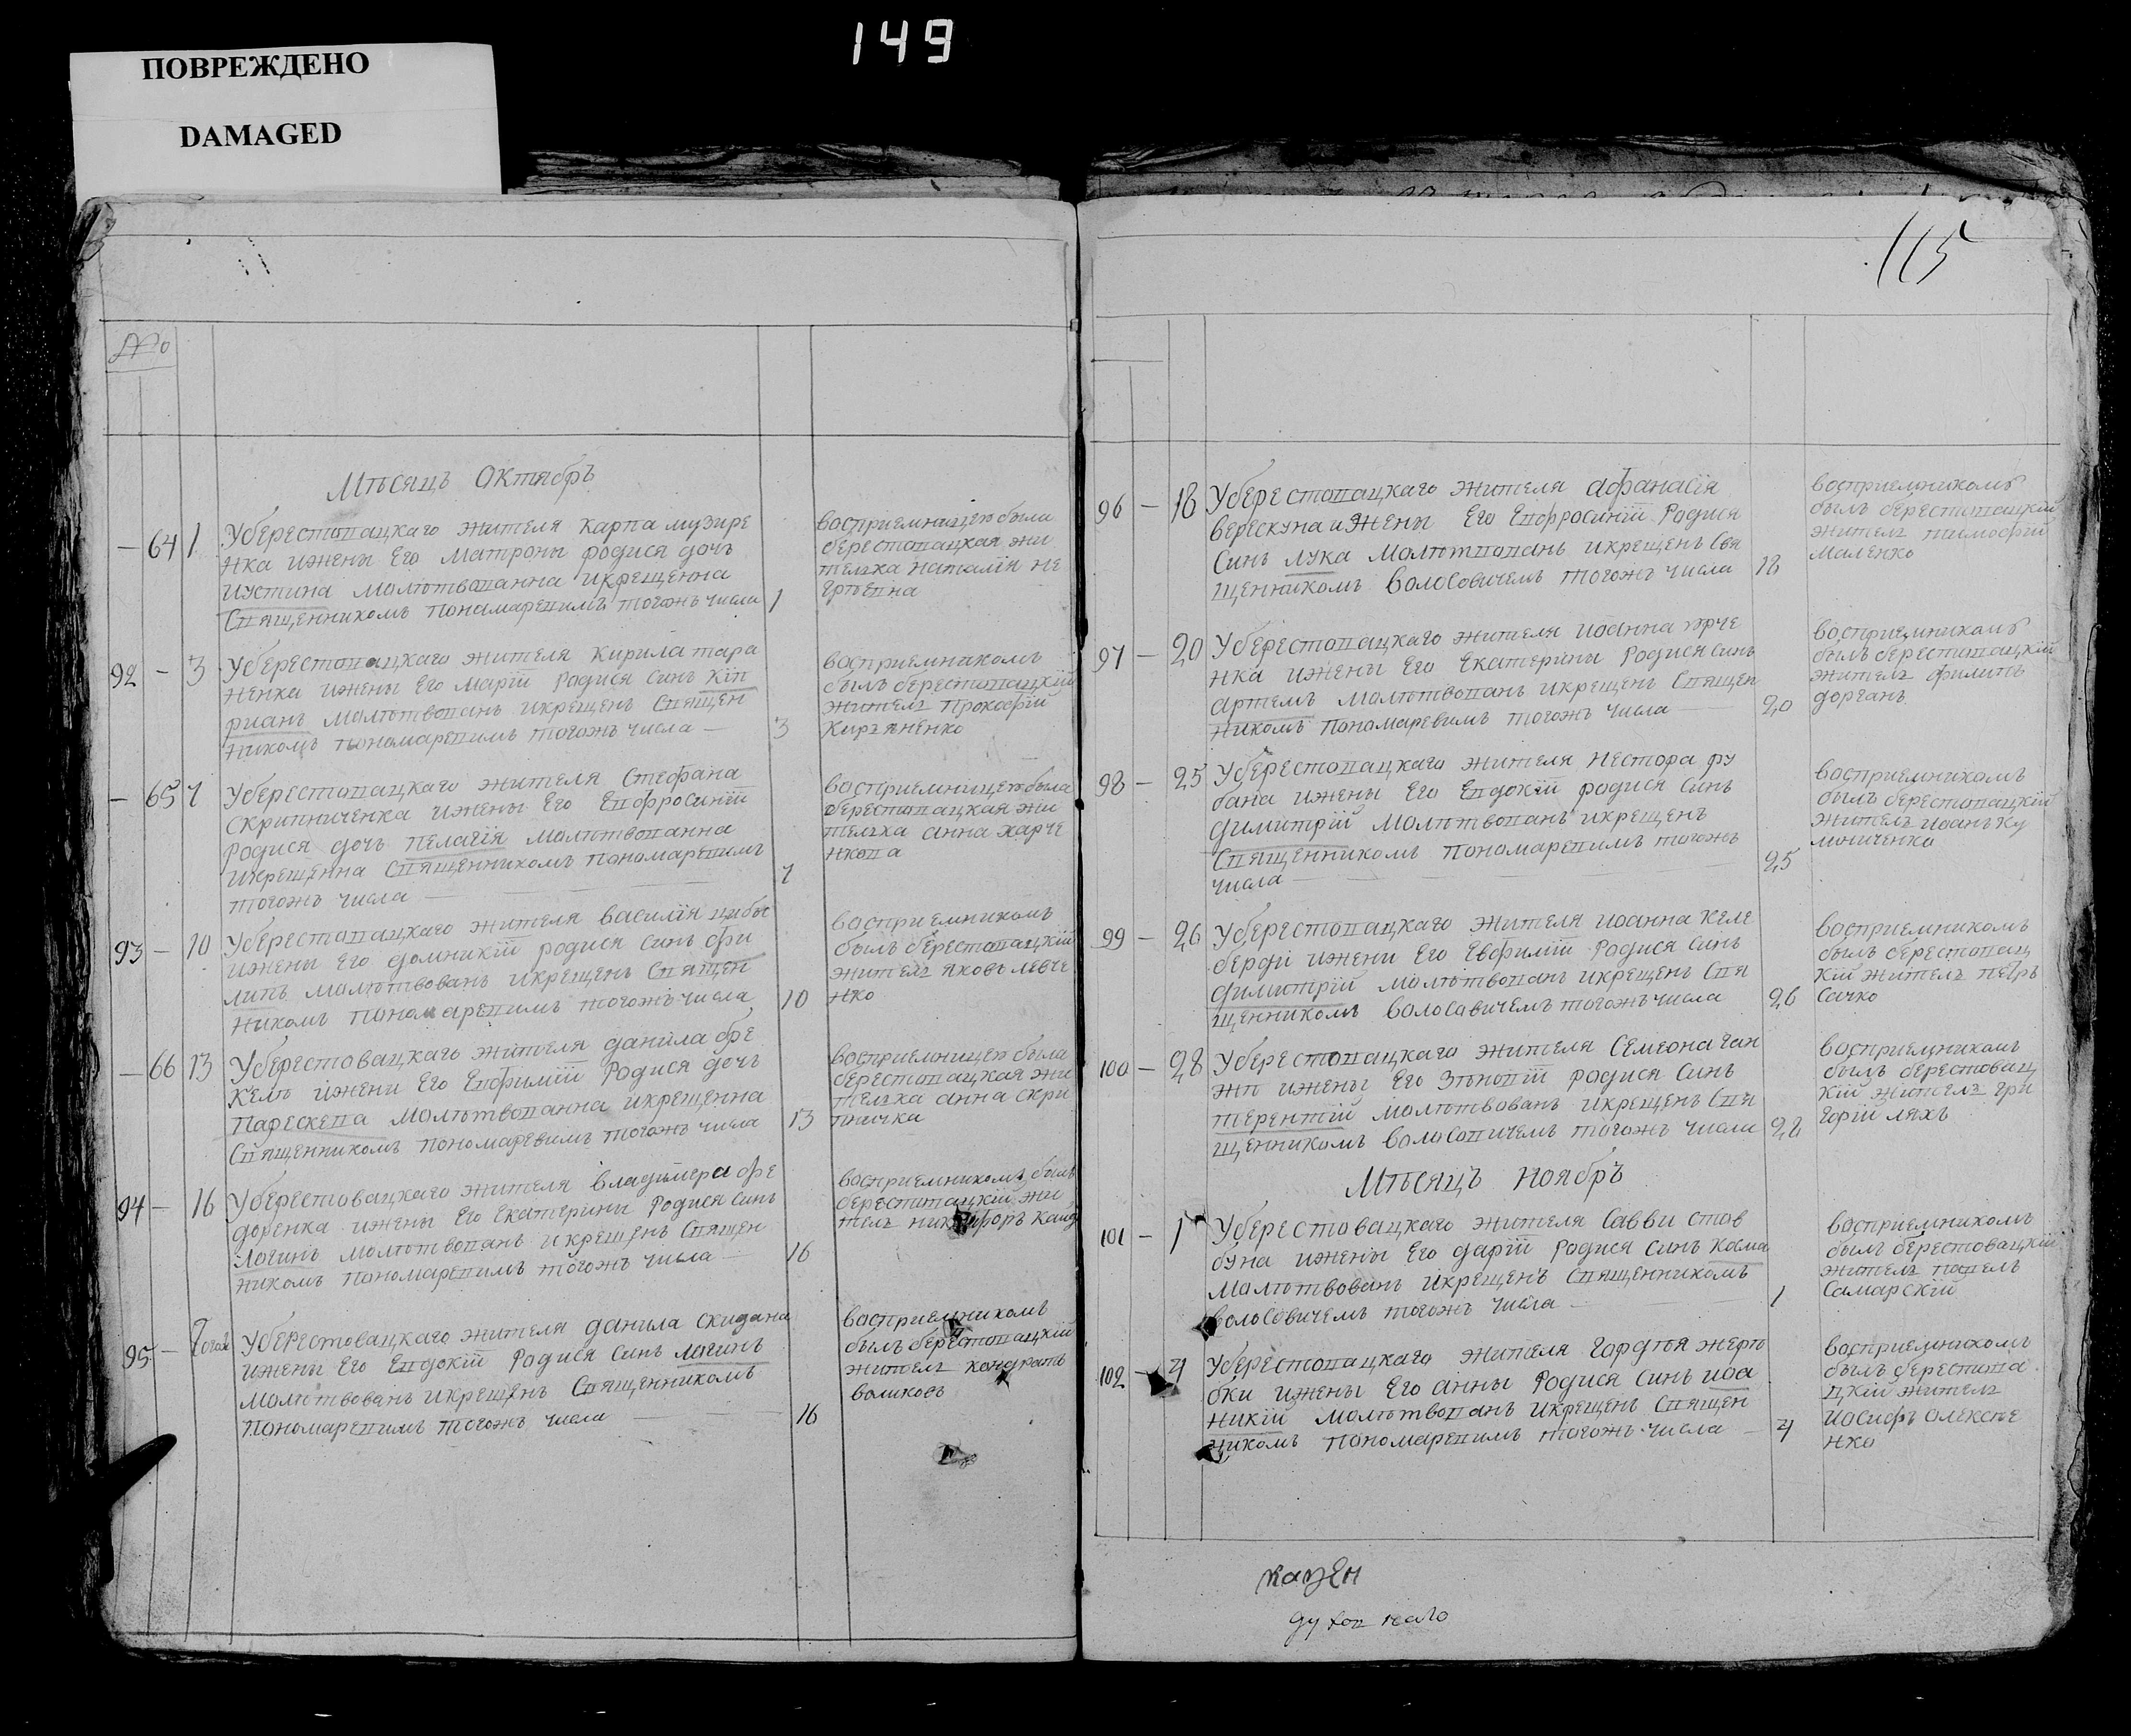 149
ПОВРЕЖДЕНО
DAMAGED
№
Мѣсяцъ Октябръ
— 64 1 Уберестовацкаго жителя Карпа музире
нка ижены Его матроны родися дочь
иустина молитвованна икрещенна
Священникомъ пономаревимъ тогожъ числа 1
восприемницею была
берестовацкая жи
телка наталия не
92 — 3 Уберестовацкаго жителя кирила тара
ненка ижены Его мариї родися Синъ Кип
рианъ молитвованъ икрещенъ Священ
никомъ пономаревимъ тогожъ числа — 3
восприемникомъ
былъ берестовацкїй
жителъ прокофїй
Киръяненко
— 65 7 Уберестовацкаго жителя Стефана
Скрипниченка ижены Его Евфросинїй
родися дочъ пелагїя молитвованна
икрещенна Священникомъ пономаревимъ
тогожъ числа — 7
восприемницею была
берестовацкая жи
телка анна харче
нкова
93 — 10 Уберестовацкаго жителя василїя цибы
ижены Его домникїй родися Синъ фи
липъ молитвованъ икрещенъ Священ
никомъ пономаревимъ тогожъ числа 10
восприемникомъ
былъ берестовацкїй
жителъ яковъ левче
нко
— 66 13 Уберестовацкаго жителя данила бре
ижени Его Евфимїй родися дочъ
Параскева молитвованна икрещенна
Священникомъ пономаревимъ тогожъ числа 13
восприемницею была
берестовацкая жи
телка анна скри
пничка
94 — 16 Уберестовацкаго жителя владимера фе
доренка ижены Его Екатерини родися Синъ
Логинъ молитвованъ икрещенъ Священ
никомъ пономаревимъ тогожъ числа — 16
восприемникомъ былъ
берестовацкїй жи
телъ никифоръ
95 — тогож Уберестовацкаго жителя данила скидана
ижены Его Евдокїй родися Синъ логинъ
молитвованъ икрещенъ Священникомъ
пономаревимъ тогожъ числа — 16
восприемникомъ
былъ берестовацкїй
жителъ кондратъ
воликовъ
115
96 — 18 Уберестовацкаго жителя афанасїя
верескуна ижены Его Евфросинїй родися
Синъ лука молитвованъ икрещенъ Свя
щенникомъ волосовичемъ тогожъ числа 18
восприемникомъ
былъ берестовацкїй
жителъ тимофїй
маленко
97 — 20 Уберестовацкаго жителя иоанна юрче
нка ижены Его Екатерины родися Синъ
артемъ молитвованъ икрещенъ Священ
никомъ пономаревимъ тогожъ числа — 20
восприемникомъ
былъ берестовацкїй
жителъ филипъ
дорганъ
98 — 25 Уберестовацкаго жителя нестора ру
бана ижены Его Евдокїй родися Синъ
димитрїй молитвованъ икрещенъ
Священникомъ пономаревимъ тогожъ
числа — 25
восприемникомъ
былъ берестовацкїй
жителъ иоанъ ку
99 — 26 Уберестовацкаго жителя иоанна келе
берди ижени Его Евфимїй родися Синъ
димитрїй молитвованъ икрещенъ Свя
щенникомъ волосавичемъ тогожъ числа 26
восприемникомъ
былъ берестовац
кїй жителъ петръ
Сачко
100 — 28 Уберестовацкаго жителя Семиона ган
жи ижены Его Зѣновїй родися Синъ
терентїй молитвованъ икрещенъ Свя
щенникомъ волосовичемъ тогожъ числа 28
восприемникомъ
былъ берестовац
кїй жителъ гри
горїй ляхъ
Мѣсяцъ Ноябръ
101 — 1 Уберестовацкаго жителя Савви стов
буна ижены Его дарїй родися Синъ Косма
молитвованъ икрещенъ Священникомъ
волосовичемъ тогожъ числа — 1
восприемникомъ
былъ берестовацкїй
жителъ павелъ
Самарскїй
102 — 4 Уберестовацкаго жителя гордѣя
ижены Его анны родися Синъ иоа
никїй молитвованъ икрещенъ Священ
никомъ пономаревимъ тогожъ числа — 4
восприемникомъ
былъ берестова
цкїй жителъ
иосифъ олексѣе
нко